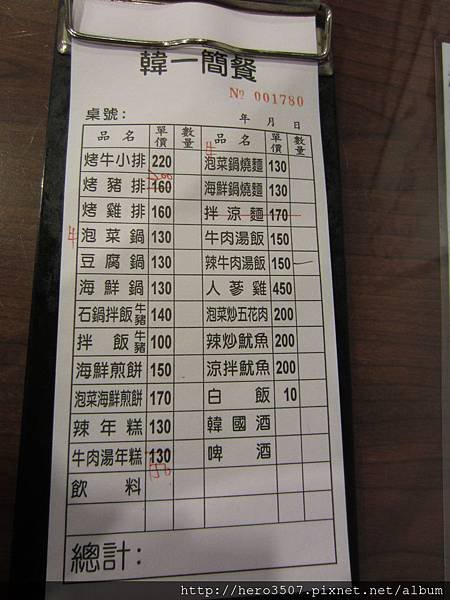 韓一簡餐
№ 001780
桌號： 年 月 日
品名 單價 數量 品名 單價 數量
烤牛小排 220 泡菜鍋燒麵 130
烤豬排 160 海鮮鍋燒麵 130
烤雞排 160 拌涼麵 170
泡菜鍋 130 牛肉湯飯 150
豆腐鍋 130 辣牛肉湯飯 150
海鮮鍋 130 人蔘雞 450
石鍋拌飯 牛豬 140 泡菜炒五花肉 200
拌飯 牛豬 100 辣炒魷魚 200
海鮮煎餅 150 涼拌魷魚 200
泡菜海鮮煎餅 170 白飯 10
辣年糕 130 韓國酒
牛肉湯年糕 130 啤酒
飲料
總計：
http://hero3507.pixnet.net/album